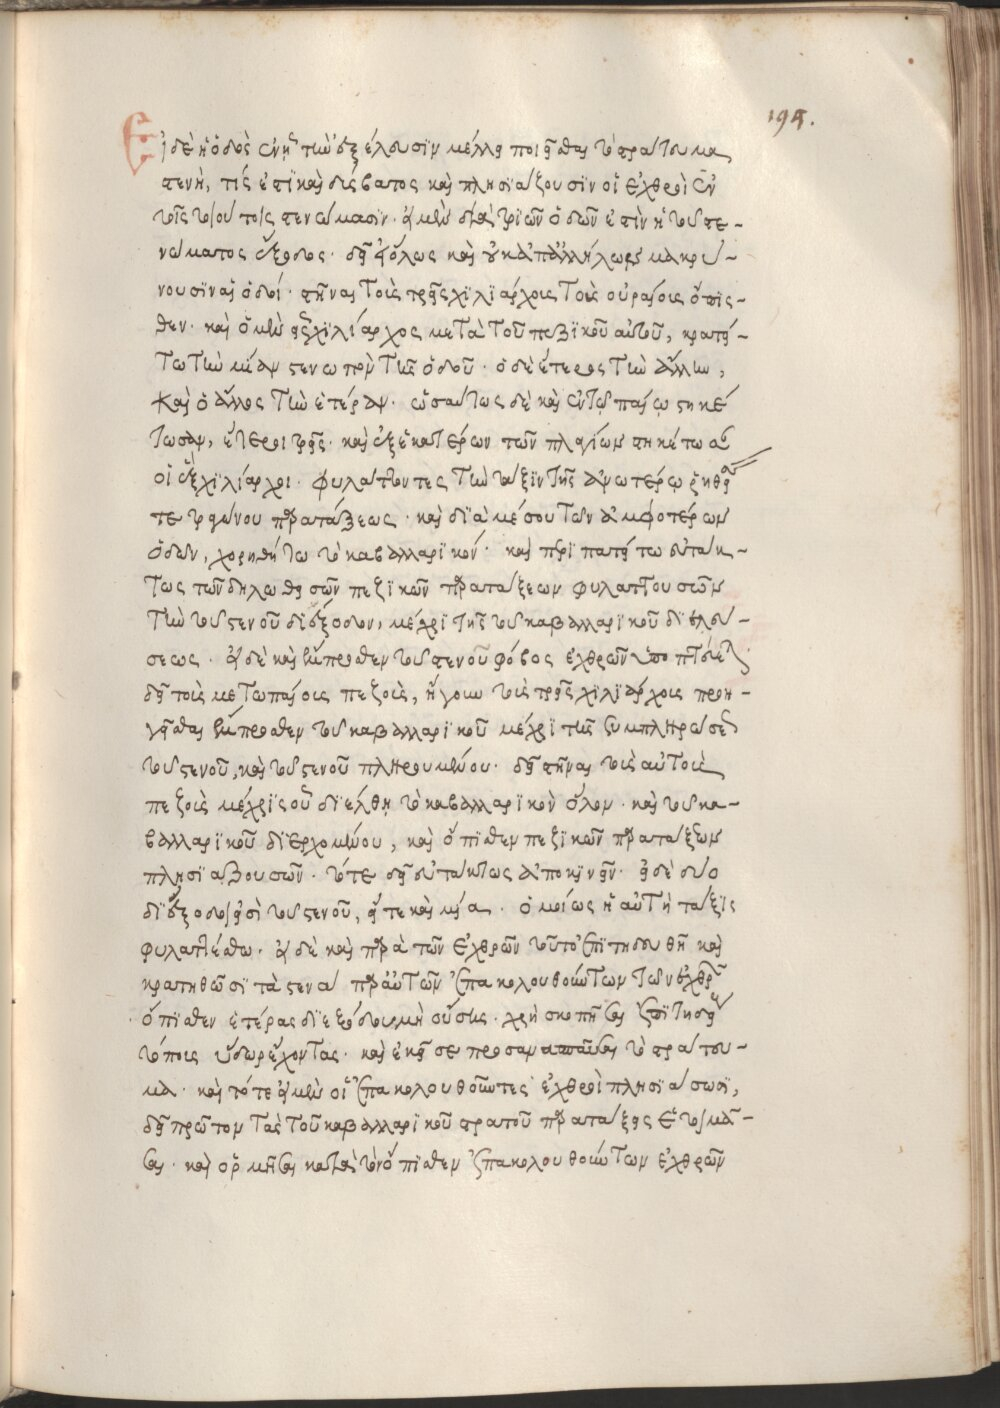 194.
Εἰ δὲ ἡ ὁδὸς ἐν ᾗ τὴν ἐξέλευσιν μέλλει ποιεῖσθαι τὸ στράτευμα
στενή, τίς ἐστι καὶ δύσβατος καὶ πλησιάζουσιν οἱ ἐχθροὶ ἐν
τοῖς τοιούτοις στενώμασιν· εἰ μὲν διὰ τριῶν ὁδῶν ἐστὶν ἡ τοῦ στε-
νώματος ἔξοδος· δεῖ εἰ ὅλως καὶ οὐκ ἀπ' ἀλλήλων μακρύ-
νουσιν αἱ ὁδοί· στῆναι τοὺς τρεῖς χιλιάρχους τοὺς οὐραίους ὄπισ-
θεν· καὶ ὁ μὲν εἷς χιλίαρχος μετὰ τοῦ πεζικοῦ αὐτοῦ, κρατεί-
τω τὴν μίαν στενωπὸν τῆς ὁδοῦ· ὁ δὲ ἕτερος τὴν ἄλλην,
καὶ ὁ ἄλλος τὴν ἑτέραν· ὡσαύτως δὲ καὶ ἐν τῷ
τωσαν, ἕτεροι τρεῖς· καὶ ἐξ ἑκατέρων τῶν πλαγίων στηκέτωσαν
οἱ ἓξ χιλίαρχοι· φυλάττοντες τὴν τάξιν τῆς ἀνωτέρω ῥηθεί-
παρατάξεως· καὶ διὰ μέσου τῶν ἀμφοτέρων
ὁδῶν, χορηθήτω τὸ καβαλλαρικόν· καὶ περιπατείτω εὐτάκ-
τως τῶν δηλωθεισῶν πεζικῶν παρατάξεων φυλαττουσῶν
τὴν τοῦ στενοῦ διέξοδον, μέχρι τῆς τοῦ καβαλλαρικοῦ διελεύ-
σεως· εἰ δὲ καὶ ἔμπροσθεν τοῦ στενοῦ φόβος ἐχθρῶν ὑποπτεύεται
δεῖ τοὺς μετωπαίους πεζοὺς, ἤγουν τοὺς τρεῖς χιλιάρχους προη-
γεῖσθαι ἔμπροσθεν τοῦ καβαλλαρικοῦ μέχρι τῆς συμπληρώσεως
τοῦ στενοῦ, καὶ τοῦ στενοῦ πληρουμένου· δεῖ στῆναι τοὺς αὐτοὺς
πεζοὺς μέχρις οὗ διέλθῃ τὸ καβαλλαρικὸν ὅλον· καὶ τοῦ κα-
βαλλαρικοῦ διερχομένου, καὶ ὄπισθεν πεζικῶν παρατάξεων
πλησιαζουσῶν· τότε δεῖ εὐτάκτως ἀποκινεῖν· εἰ δὲ δύο
διέξοδοι εἰσὶ τοῦ στενοῦ, εἴτε καὶ μία· ὁμοίως ἡ αὐτὴ τάξις
φυλαττέσθω· εἰ δὲ καὶ παρὰ τῶν ἐχθρῶν τοῦτο ἐπιτηδευθῇ καὶ
κρατηθῶσι τὰ στενὰ παρ' αὐτῶν ἐπακολουθούντων τῶν ἐχθρῶν
ὄπισθεν ἑτέρας διεξόδου μὴ οὔσης· χρὴ σκοπῆσαι ἐπιτηδείους
τόπους ὕδωρ ἔχοντας· καὶ ἐκεῖσε προσαναπαῦσαι τὸ στράτευ-
μα· καὶ τότε εἰ μὲν οἱ ἐπακολουθοῦντες ἐχθροὶ πλησιάσωσι,
δεῖ πρῶτον τὰς τοῦ καβαλλαρικοῦ στρατοῦ παρατάξεις ἑτοιμά-
σαι· καὶ ὁρμῆσαι κατὰ τῶν ὄπισθεν ἐπακολουθούντων ἐχθρῶν